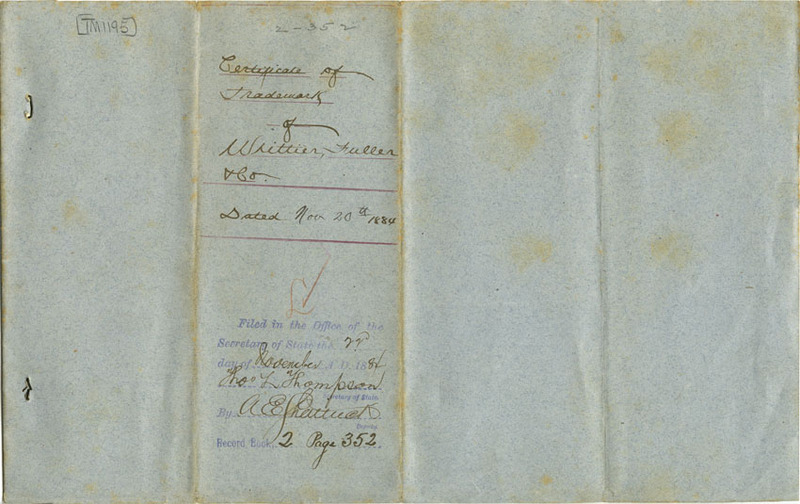 TM1195
2-352
Certificate of
Trademark
of
Whittier, Fuller
& Co.
Dated Nov 20th 1884
Filed in the Office of the
Secretary of State the
day of November A.D. 1884
Thos L. Thompson
Secretary of State
By A. E. Shattuck
Deputy
Record Book 2 Page 352.